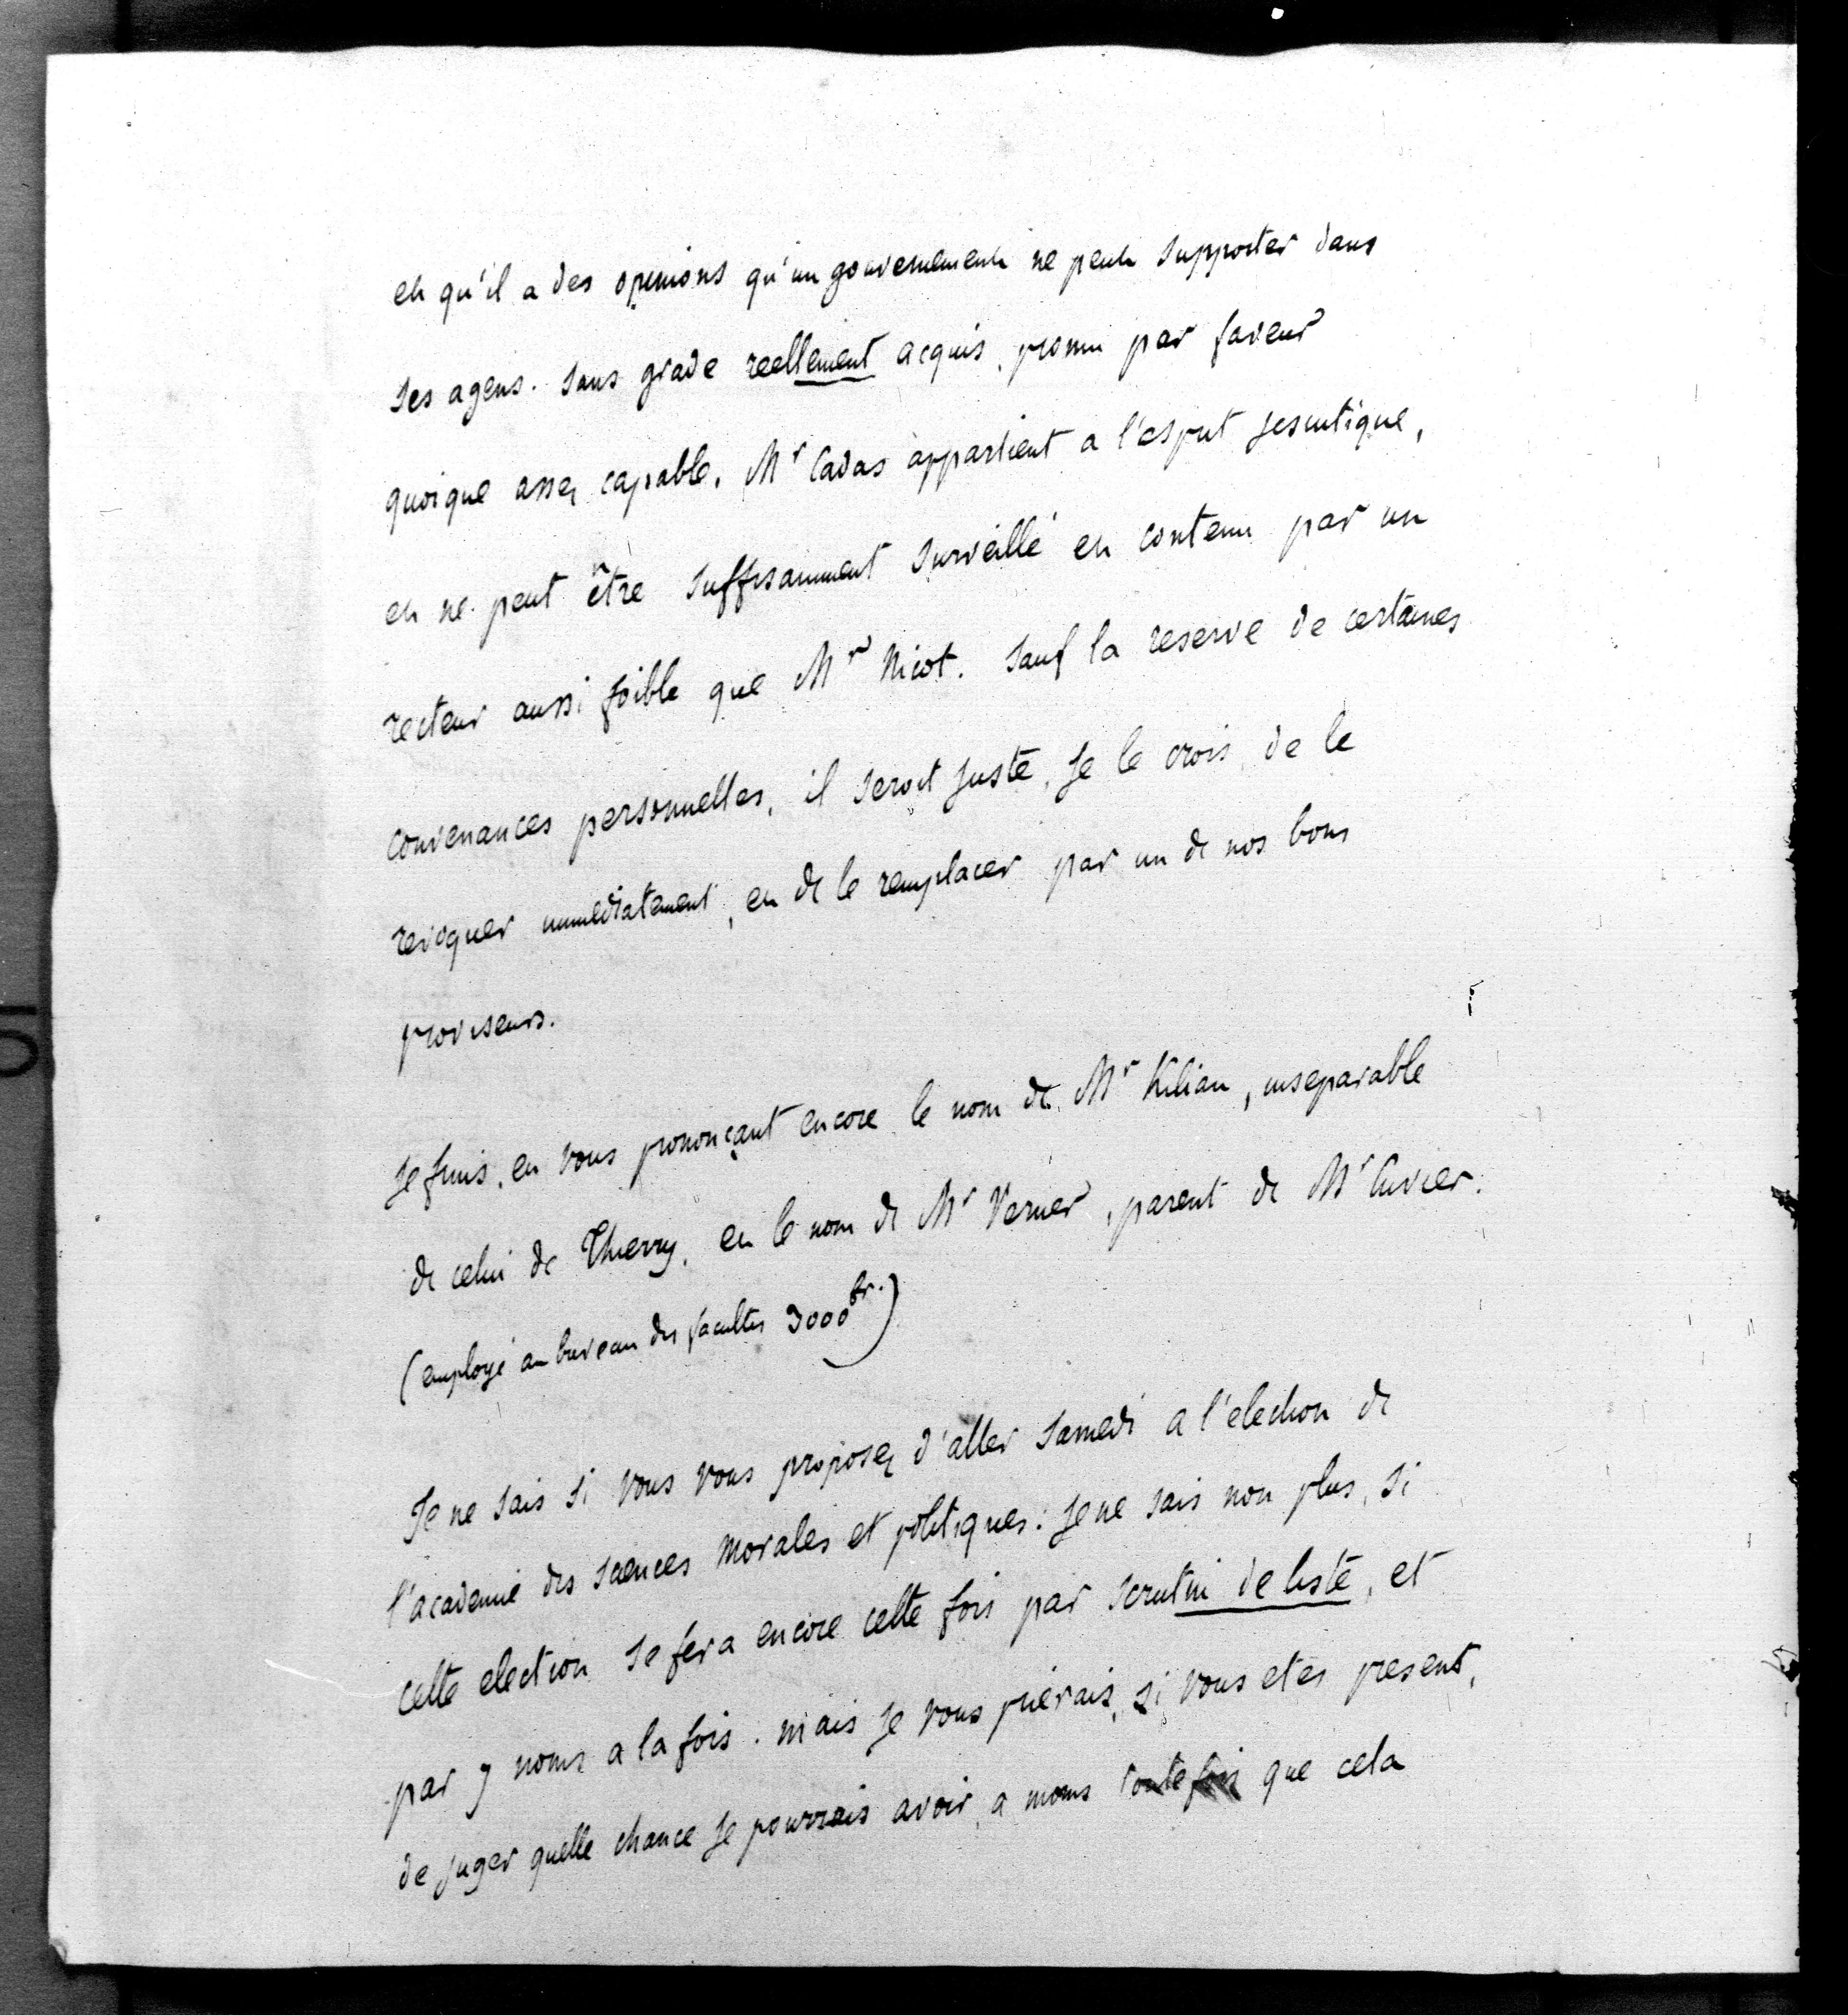 et qu'il a des opinions qu'un gouvernement ne peut supporter dans
ses agens. sans grade reellement acquis, promu par faveur
quoique assez capable, Mr Cadas appartient a l'esprit jesuitique,
et ne peut être suffisamment surveillé et contenu par un
recteur aussi foible que Mr Nicot. sauf la reserve de certaines
convenances personnelles, il seroit juste, je le crois, de le
revoquer immediatement, et de le remplacer par un de nos bons
proviseurs.
Je finis, en vous prononçant encore le nom de Mr Kilian, inseparable
de celui de Thierry, et le nom de Mr Verner, parent de Mr Cuvier.
(employé au bureau des facultes 3000 fr.)
Je ne sais si vous vous proposez d'aller samedi a l'election de
l'academie des sciences morales et politiques: je ne sais non plus, si
cette election se fera encore cette fois par scrutin de liste, et
par 7 noms a la fois. mais je vous prierais, si vous etes present,
de juger quelle chance je pourrais avoir, a moins toutefois que cela